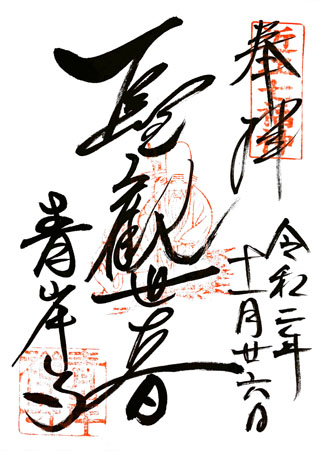 奉拝
令和二年
十一月廿六日
聖観世音
青岸寺